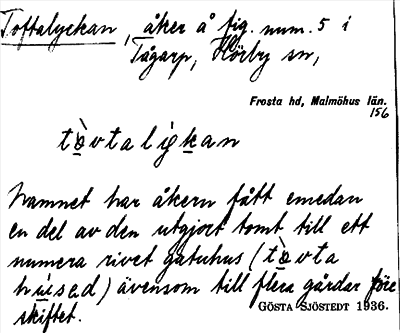 Toftalyckan, åker å fig. num. 5 i
Tågarp, Hörby sn,
Frosta hd, Malmöhus län.
156
tòvtaligkan
Namnet har åkern fått emedan
en del av den utgjort tomt till ett
numera rivet gatuhus (tòvta
húsəd) ävensom till flera gårdar före
skiftet.
GÖSTA SJÖSTEDT 1936.